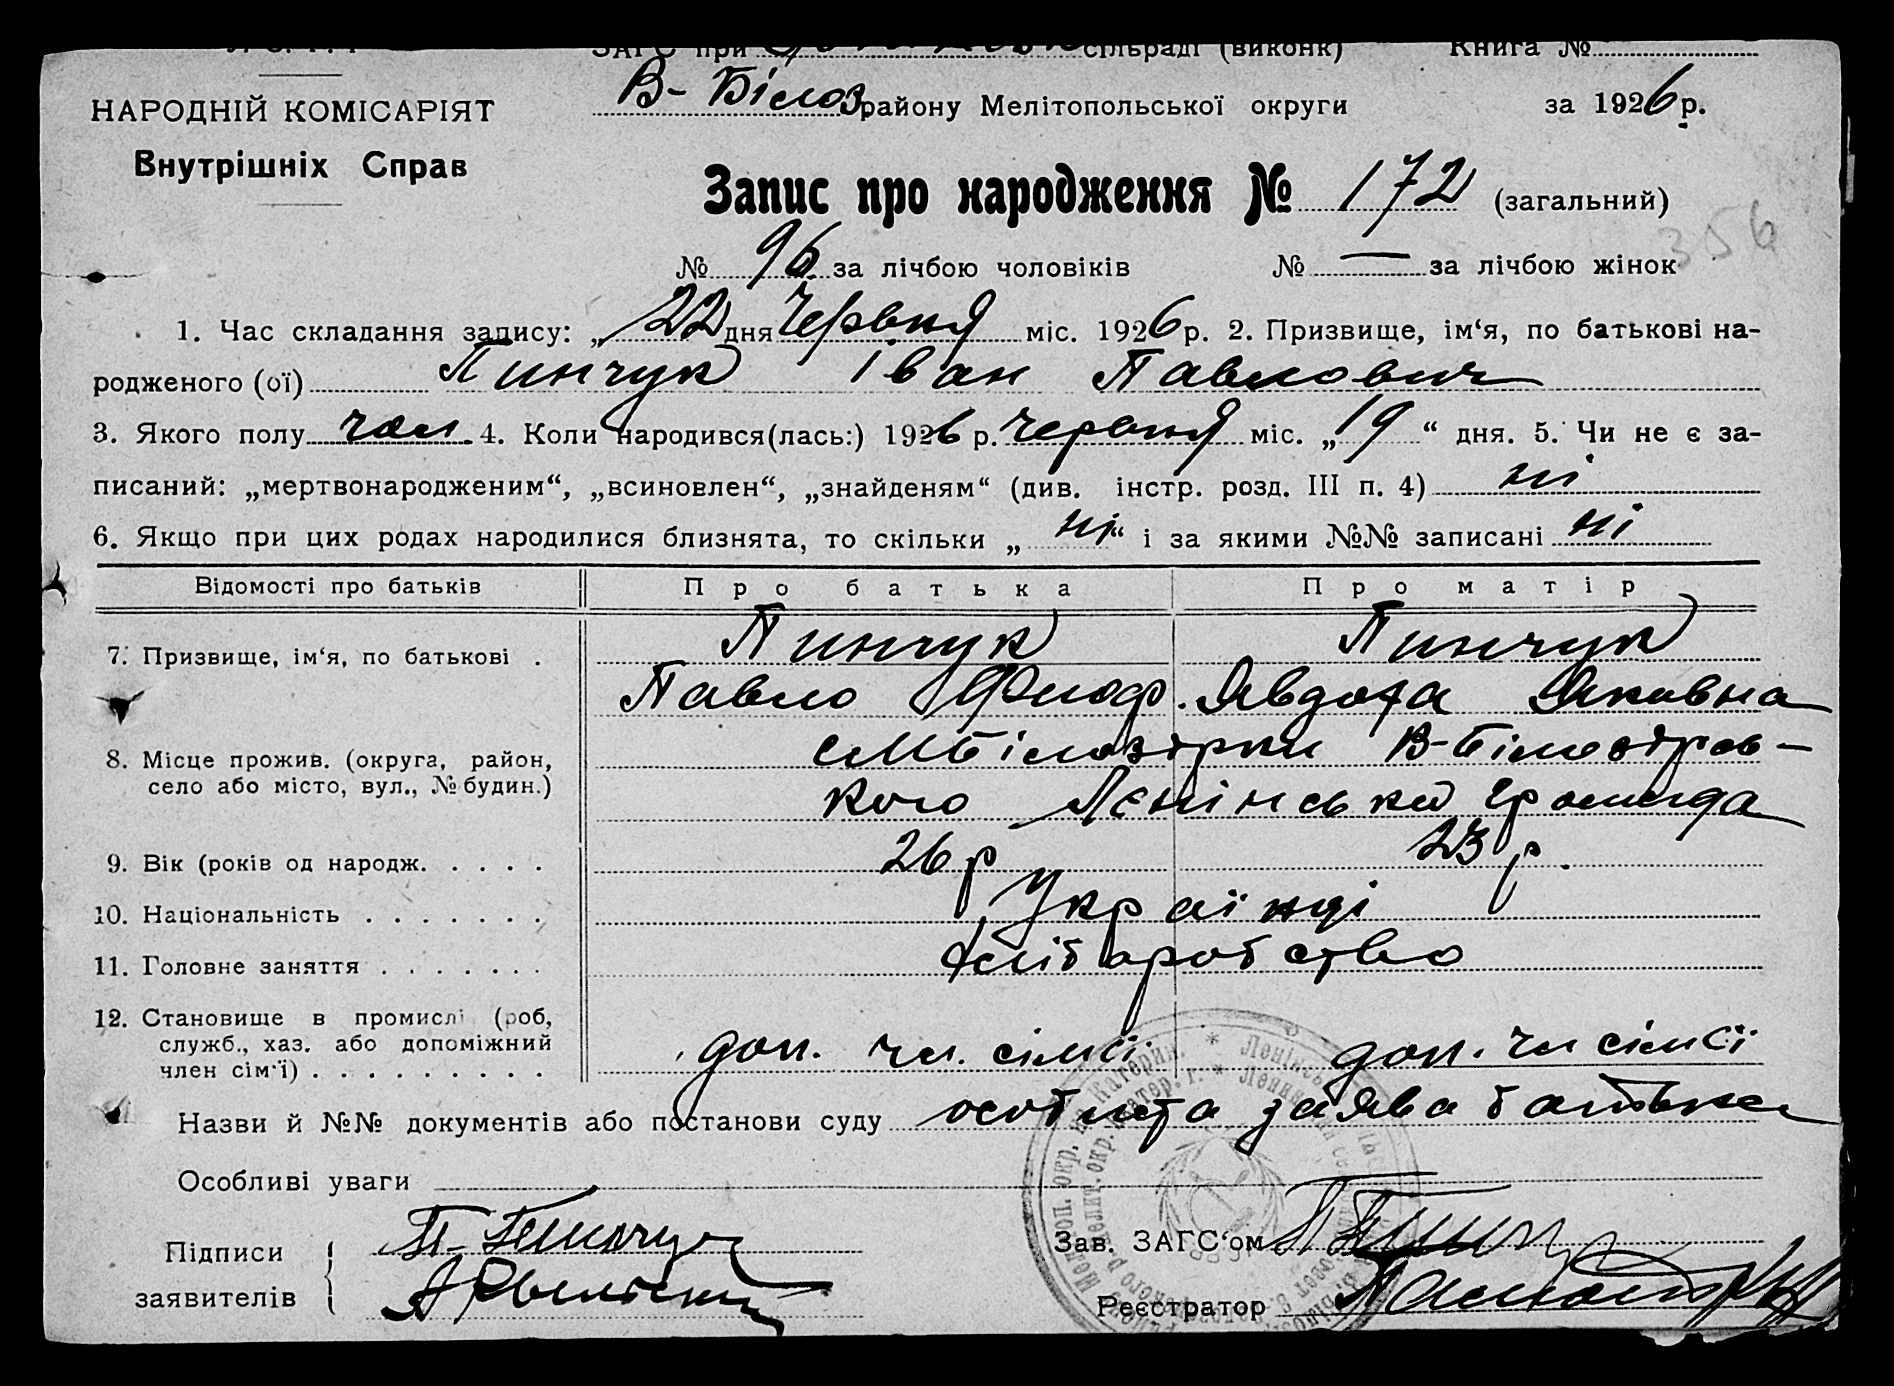 ЗАГС при сільраді (виконк) Книга №
НАРОДНІЙ КОМІСАРІЯТ
Внутрішніх Справ
В-Білоз. району Мелітопольської округи за 1926 р.
Запис про народження № 172 (загальний)
356
№ 96 за лічбою чоловіків № — за лічбою жінок
1. Час складання запису: „22 дня Червня міс. 1926 р. 2. Призвище, ім‘я, по батькові на-
родженого (ої) Пинчук Іван Павлович
3. Якого полу чол. 4. Коли народився(лась:) 1926 р. Червня міс. „19“ дня. 5. Чи не є за-
писаний: „мертвонародженим“, „всиновлен“, „знайденям“ (див. інстр. розд. III п. 4) ні
6. Якщо при цих родах народилися близнята, то скільки „ні“ і за якими №№ записані ні
Відомості про батьків Про батька Про матір
7. Призвище, ім‘я, по батькові . Пинчук Пинчук
Павло Явдоха Яковна
8. Місце прожив. (округа, район, село або місто, вул., № будин.) Білозірки В-Білозіров-
кого Ленінська громада
9. Вік (років од народж. . . . . 26 р 23 р.
10. Національність . . . . . . . Українці
11. Головне заняття . . . . . . . Хліборобство
12. Становище в промислі (роб, служб., хаз. або допоміжний член сім‘ї) . . . . . . . . . доп. чл. сімї. доп. чл сімєї
Назви й №№ документів або постанови суду особиста заява батька
Особливі уваги
Підписи заявителів П. Пинчук
Зав. ЗАГС‘ом
Реєстратор